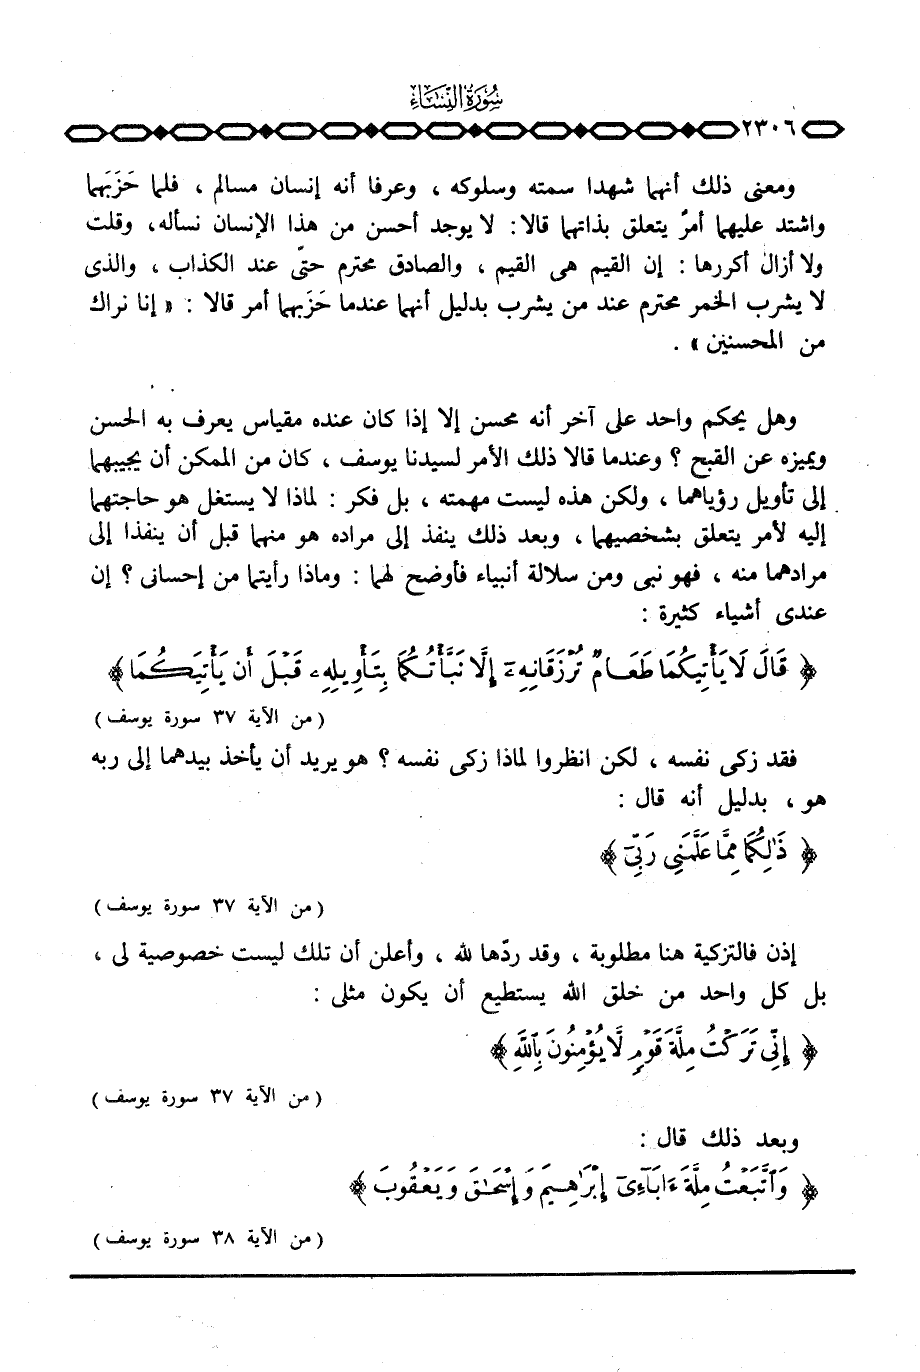 سُورَةُ النِّسَاءِ
٢٣٠٦
ومعنى ذلك أنهما شهدا سمته وسلوكه ، وعرفا أنه إنسان مسالم ، فلما حَزَبَهما
واشتد عليهما أمرٌ يتعلق بذاتهما قالا: لا يوجد أحسن من هذا الإنسان نسأله، وقلت
ولا أزال أكررها : إن القيم هى القيم ، والصادق محترم حتىّ عند الكذاب ، والذى
لا يشرب الخمر محترم عند من يشرب بدليل أنهما عندما حَزَبهما أمر قالا : « إنا نراك
من المحسنين » .
وهل يحكم واحد على آخر أنه محسن إلا إذا كان عنده مقياس يعرف به الحسن
ويميزه عن القبح ؟ وعندما قالا ذلك الأمر لسيدنا يوسف ، كان من الممكن أن يجيبهما
إلى تأويل رؤياهما ، ولكن هذه ليست مهمته ، بل فكر : لماذا لا يستغل هو حاجتهما
إليه لأمر يتعلق بشخصيهما ، وبعد ذلك ينفذ إلى مراده هو منهما قبل أن ينفذا إلى
مرادهما منه ، فهو نبى ومن سلالة أنبياء فأوضح لهما : وماذا رأيتما من إحسانى ؟ إن
عندى أشياء كثيرة :
﴿ قَالَ لَا يَأْتِيكُمَا طَعَامٌ تُرْزَقَانِهِۦٓ إِلَّا نَبَّأْتُكُمَا بِتَأْوِيلِهِۦ قَبْلَ أَن يَأْتِيَكُمَا ﴾
( من الآية ٣٧ سورة يوسف )
فقد زكى نفسه ، لكن انظروا لماذا زكى نفسه ؟ هو يريد أن يأخذ بيدهما إلى ربه
هو ، بدليل أنه قال :
﴿ ذَٰلِكُمَا مِمَّا عَلَّمَنِي رَبِّيٓ ﴾
( من الآية ٣٧ سورة يوسف )
إذن فالتزكية هنا مطلوبة ، وقد ردّها لله ، وأعلن أن تلك ليست خصوصية لى ،
بل كل واحد من خلق الله يستطيع أن يكون مثلى :
﴿ إِنِّي تَرَكْتُ مِلَّةَ قَوْمٍ لَّا يُؤْمِنُونَ بِٱللَّهِ ﴾
( من الآية ٣٧ سورة يوسف )
وبعد ذلك قال :
﴿ وَٱتَّبَعْتُ مِلَّةَ ءَابَآءِىٓ إِبْرَٰهِيمَ وَإِسْحَٰقَ وَيَعْقُوبَ ﴾
( من الآية ٣٨ سورة يوسف )